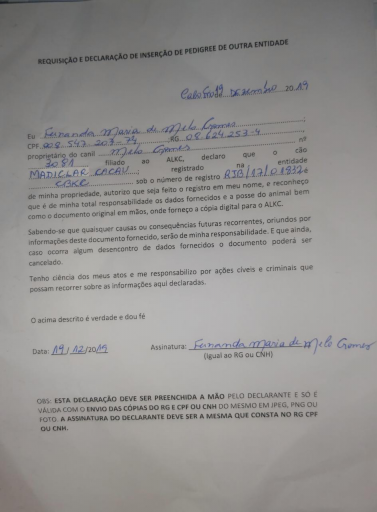 REQUISIÇÃO E DECLARAÇÃO DE INSERÇÃO DE PEDIGREE DE OUTRA ENTIDADE
Cabo Frio 19 Dezembro 2019
Eu Fernanda Maria de Melo Gomes
CPF RG 08.624.253-4
proprietário do canil Melo Gomes nº
3081 filiado ao ALKC, declaro que o cão
MADICLAR CACAU registrado na entidade
CBKC sob o número de registro RJB/17/01832
de minha propriedade, autorizo que seja feito o registro em meu nome, e reconheço
que é de minha total responsabilidade os dados fornecidos e a posse do animal bem
como o documento original em mãos, onde forneço a cópia digital para o ALKC.
Sabendo-se que quaisquer causas ou consequências futuras recorrentes, oriundos por
informações deste documento fornecido, serão de minha responsabilidade. E que ainda,
caso ocorra algum desencontro de dados fornecidos o documento poderá ser
cancelado.
Tenho ciência dos meus atos e me responsabilizo por ações cíveis e criminais que
possam recorrer sobre as informações aqui declaradas.
O acima descrito é verdade e dou fé
Data: 19/12/2019 Assinatura: Fernanda Maria de Melo Gomes
(Igual ao RG ou CNH)
OBS: ESTA DECLARAÇÃO DEVE SER PREENCHIDA A MÃO PELO DECLARANTE E SÓ É
VÁLIDA COM O ENVIO DAS CÓPIAS DO RG E CPF OU CNH DO MESMO EM JPEG, PNG OU
FOTO. A ASSINATURA DO DECLARANTE DEVE SER A MESMA QUE CONSTA NO RG CPF
OU CNH.